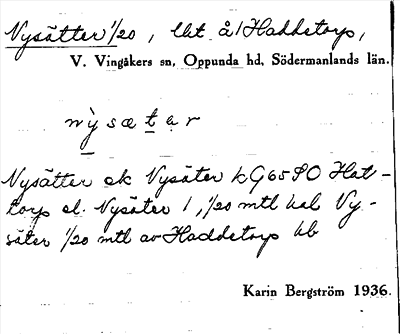 Nysätter 1/20, lht å/Haddetorp,
V. Vingåkers sn, Oppunda hd, Södermanlands län.
nỳsætar
Nysätter ek Nysäter kG65SO Hat-
torp el. Nysäter 1, 1/20 mtl kal Ny-
säter 1/20 mtl av Haddetorp kb
Karin Bergström 1936.